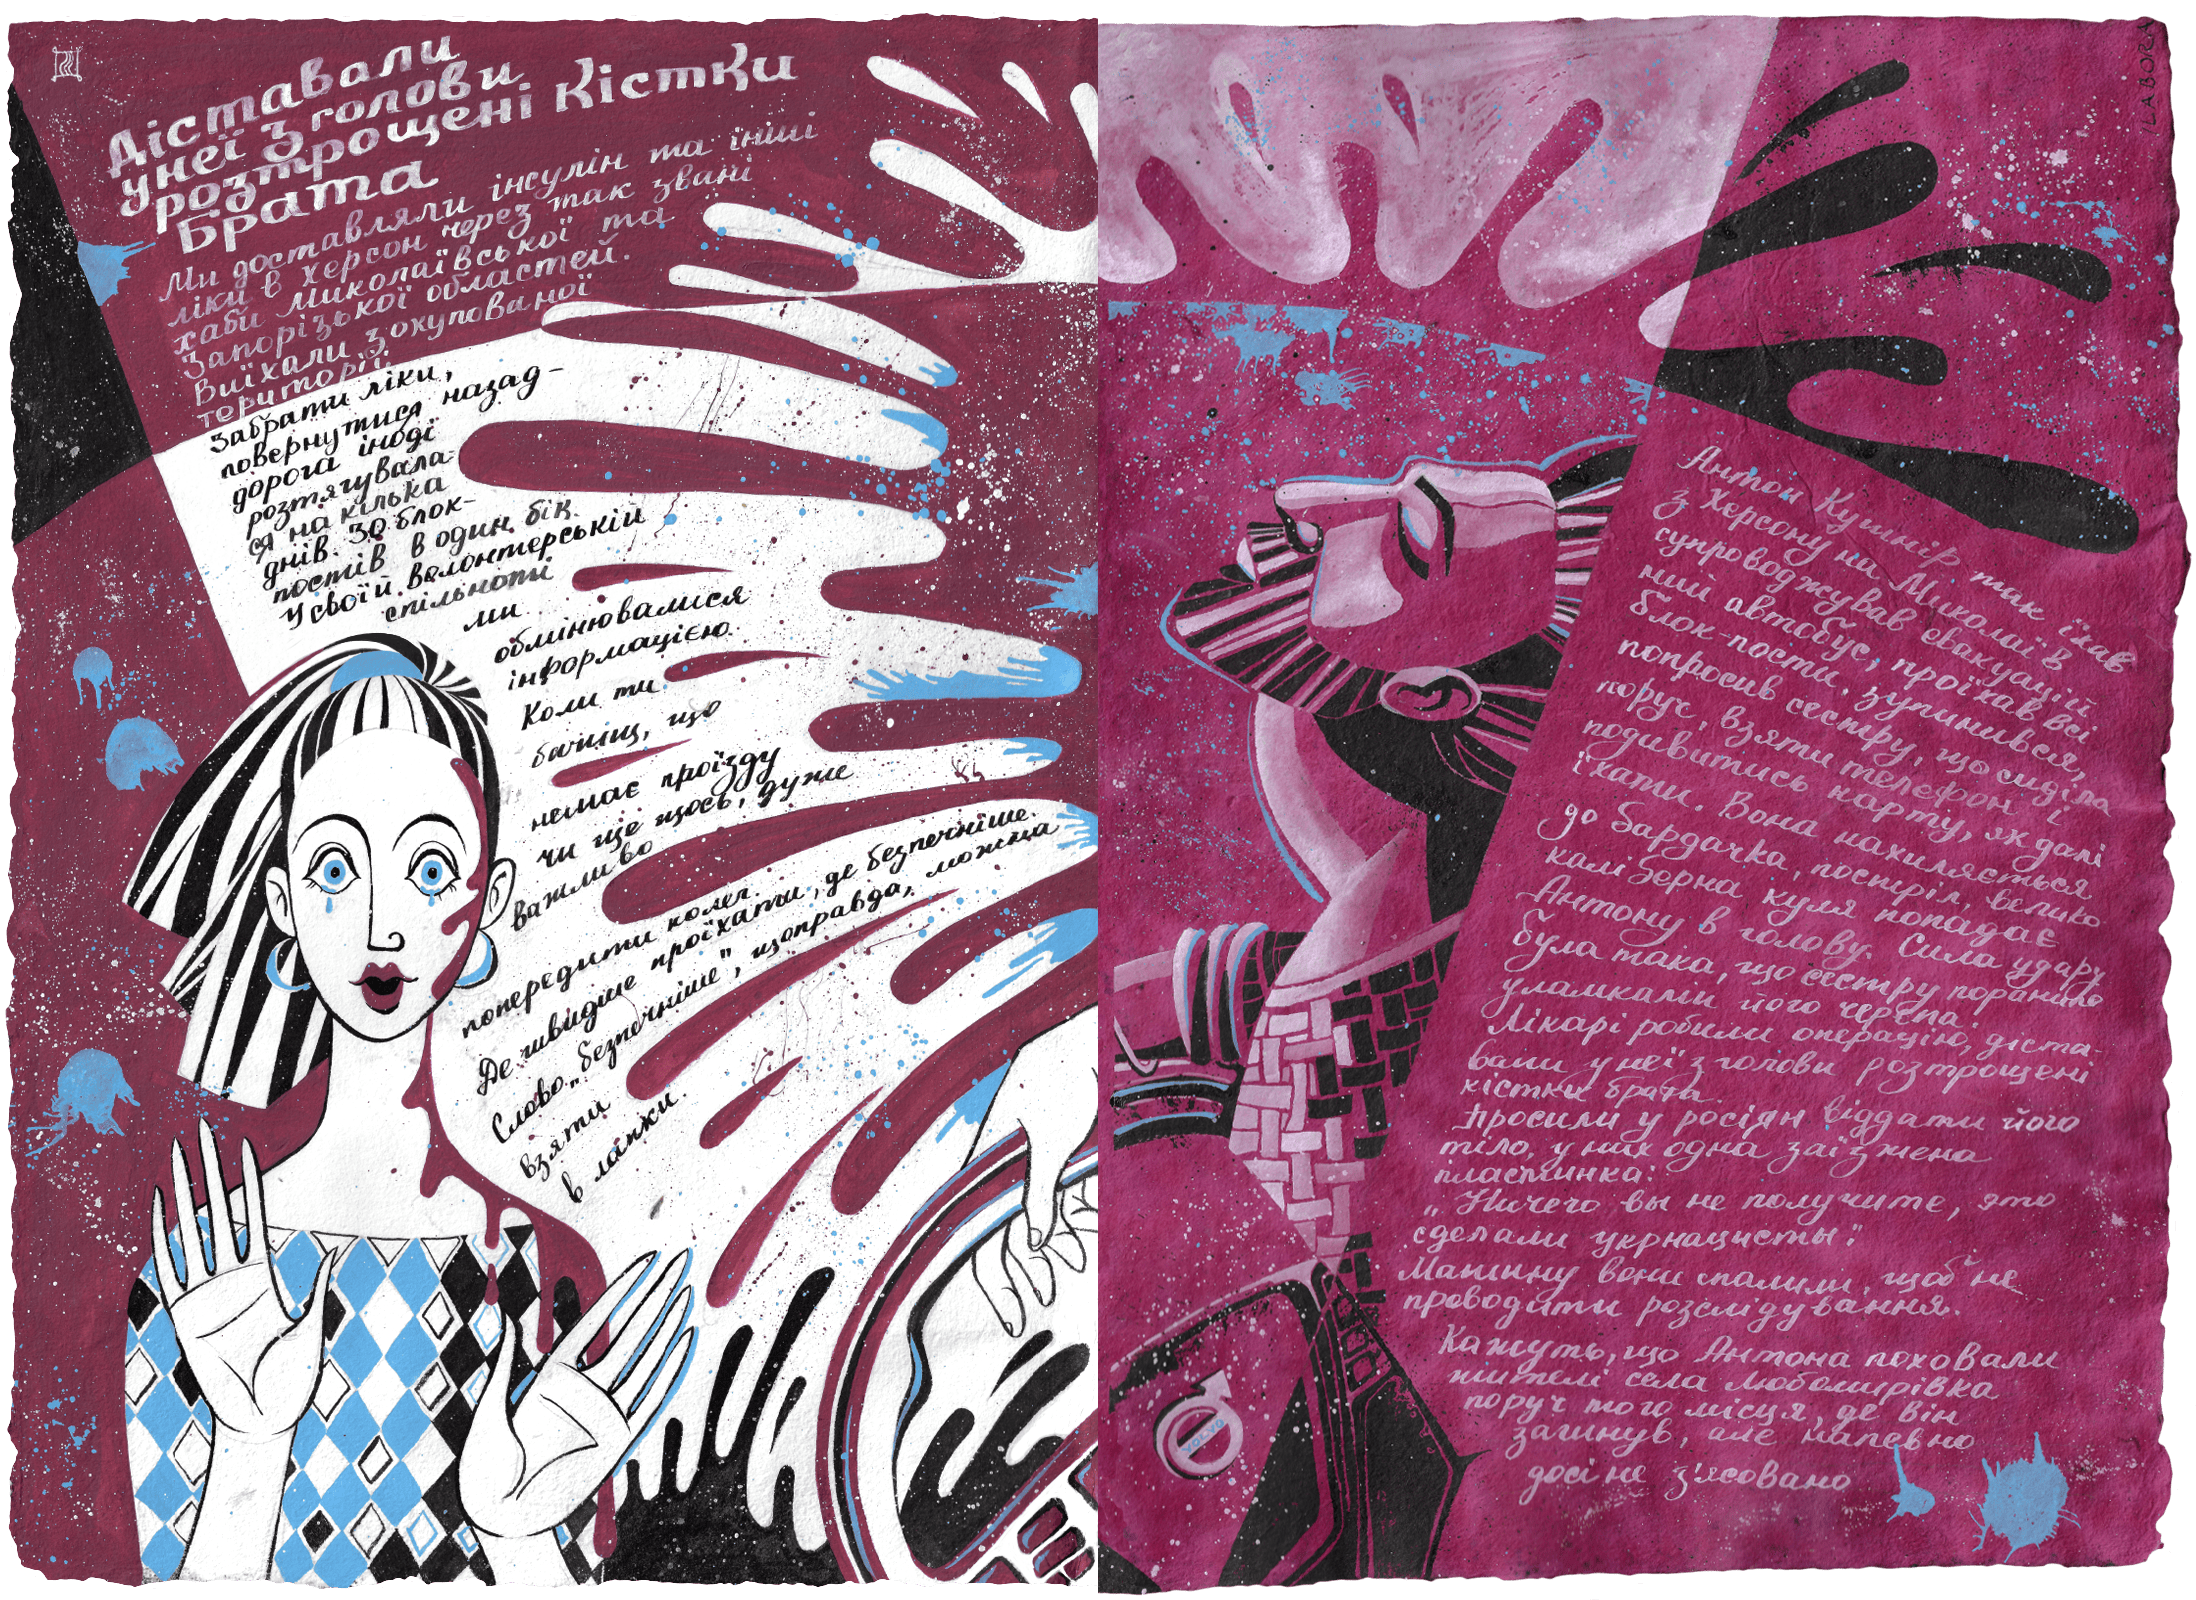 Діставали
у неї з голови
розтрощені Кістки
Брата
Ми доставляли інсулін та інші
ліки в Херсон через так звані
хаби Миколаївської та
Запорізької областей.
Виїхали з окупованої
території,
забрати ліки,
повернутися назад-
дорога іноді
розтягувала-
ся на кілька
днів. 30 блок-
постів в один бік.
У своїй волонтерській
спільноті
ми
обмінювалися
інформацією.
Коли ти
бачиш, що
немає проїзду
чи ще щось, дуже
важливо
попередити колег.
Де швидше проїхати, де безпечніше.
Слово „безпечніше", щоправда, можна
взяти
в лапки.
ILABORA
Антон Кушнір так їхав
з Херсону на Миколаїв
супроводжував евакуацій
ний автобус, проїхав всі
блок-пости. Зупинився,
попросив сестру, що сиділа
поруч, взяти телефон і
подивитись карту, як далі
їхати. Вона нахиляється
до бардачка, постріл, велико
каліберна куля попадає
Антону в голову. Сила удару
була така, що сестру поранило
уламками його черепа.
Лікарі робили операцію, діста-
вали у неї з голови розтрощені
кістки брата.
Просили у росіян віддати його
тіло, у них одна заїзжена
пластинка:
„Ничего вы не получите, это
сделали укрнацисты".
Машину вони спалили, щоб не
проводити розслідування.
Кажуть, що Антона поховали
жителі села Любомирівка
поруч того місця, де він
загинув, але напевно
досі не з'ясовано
VOLVO